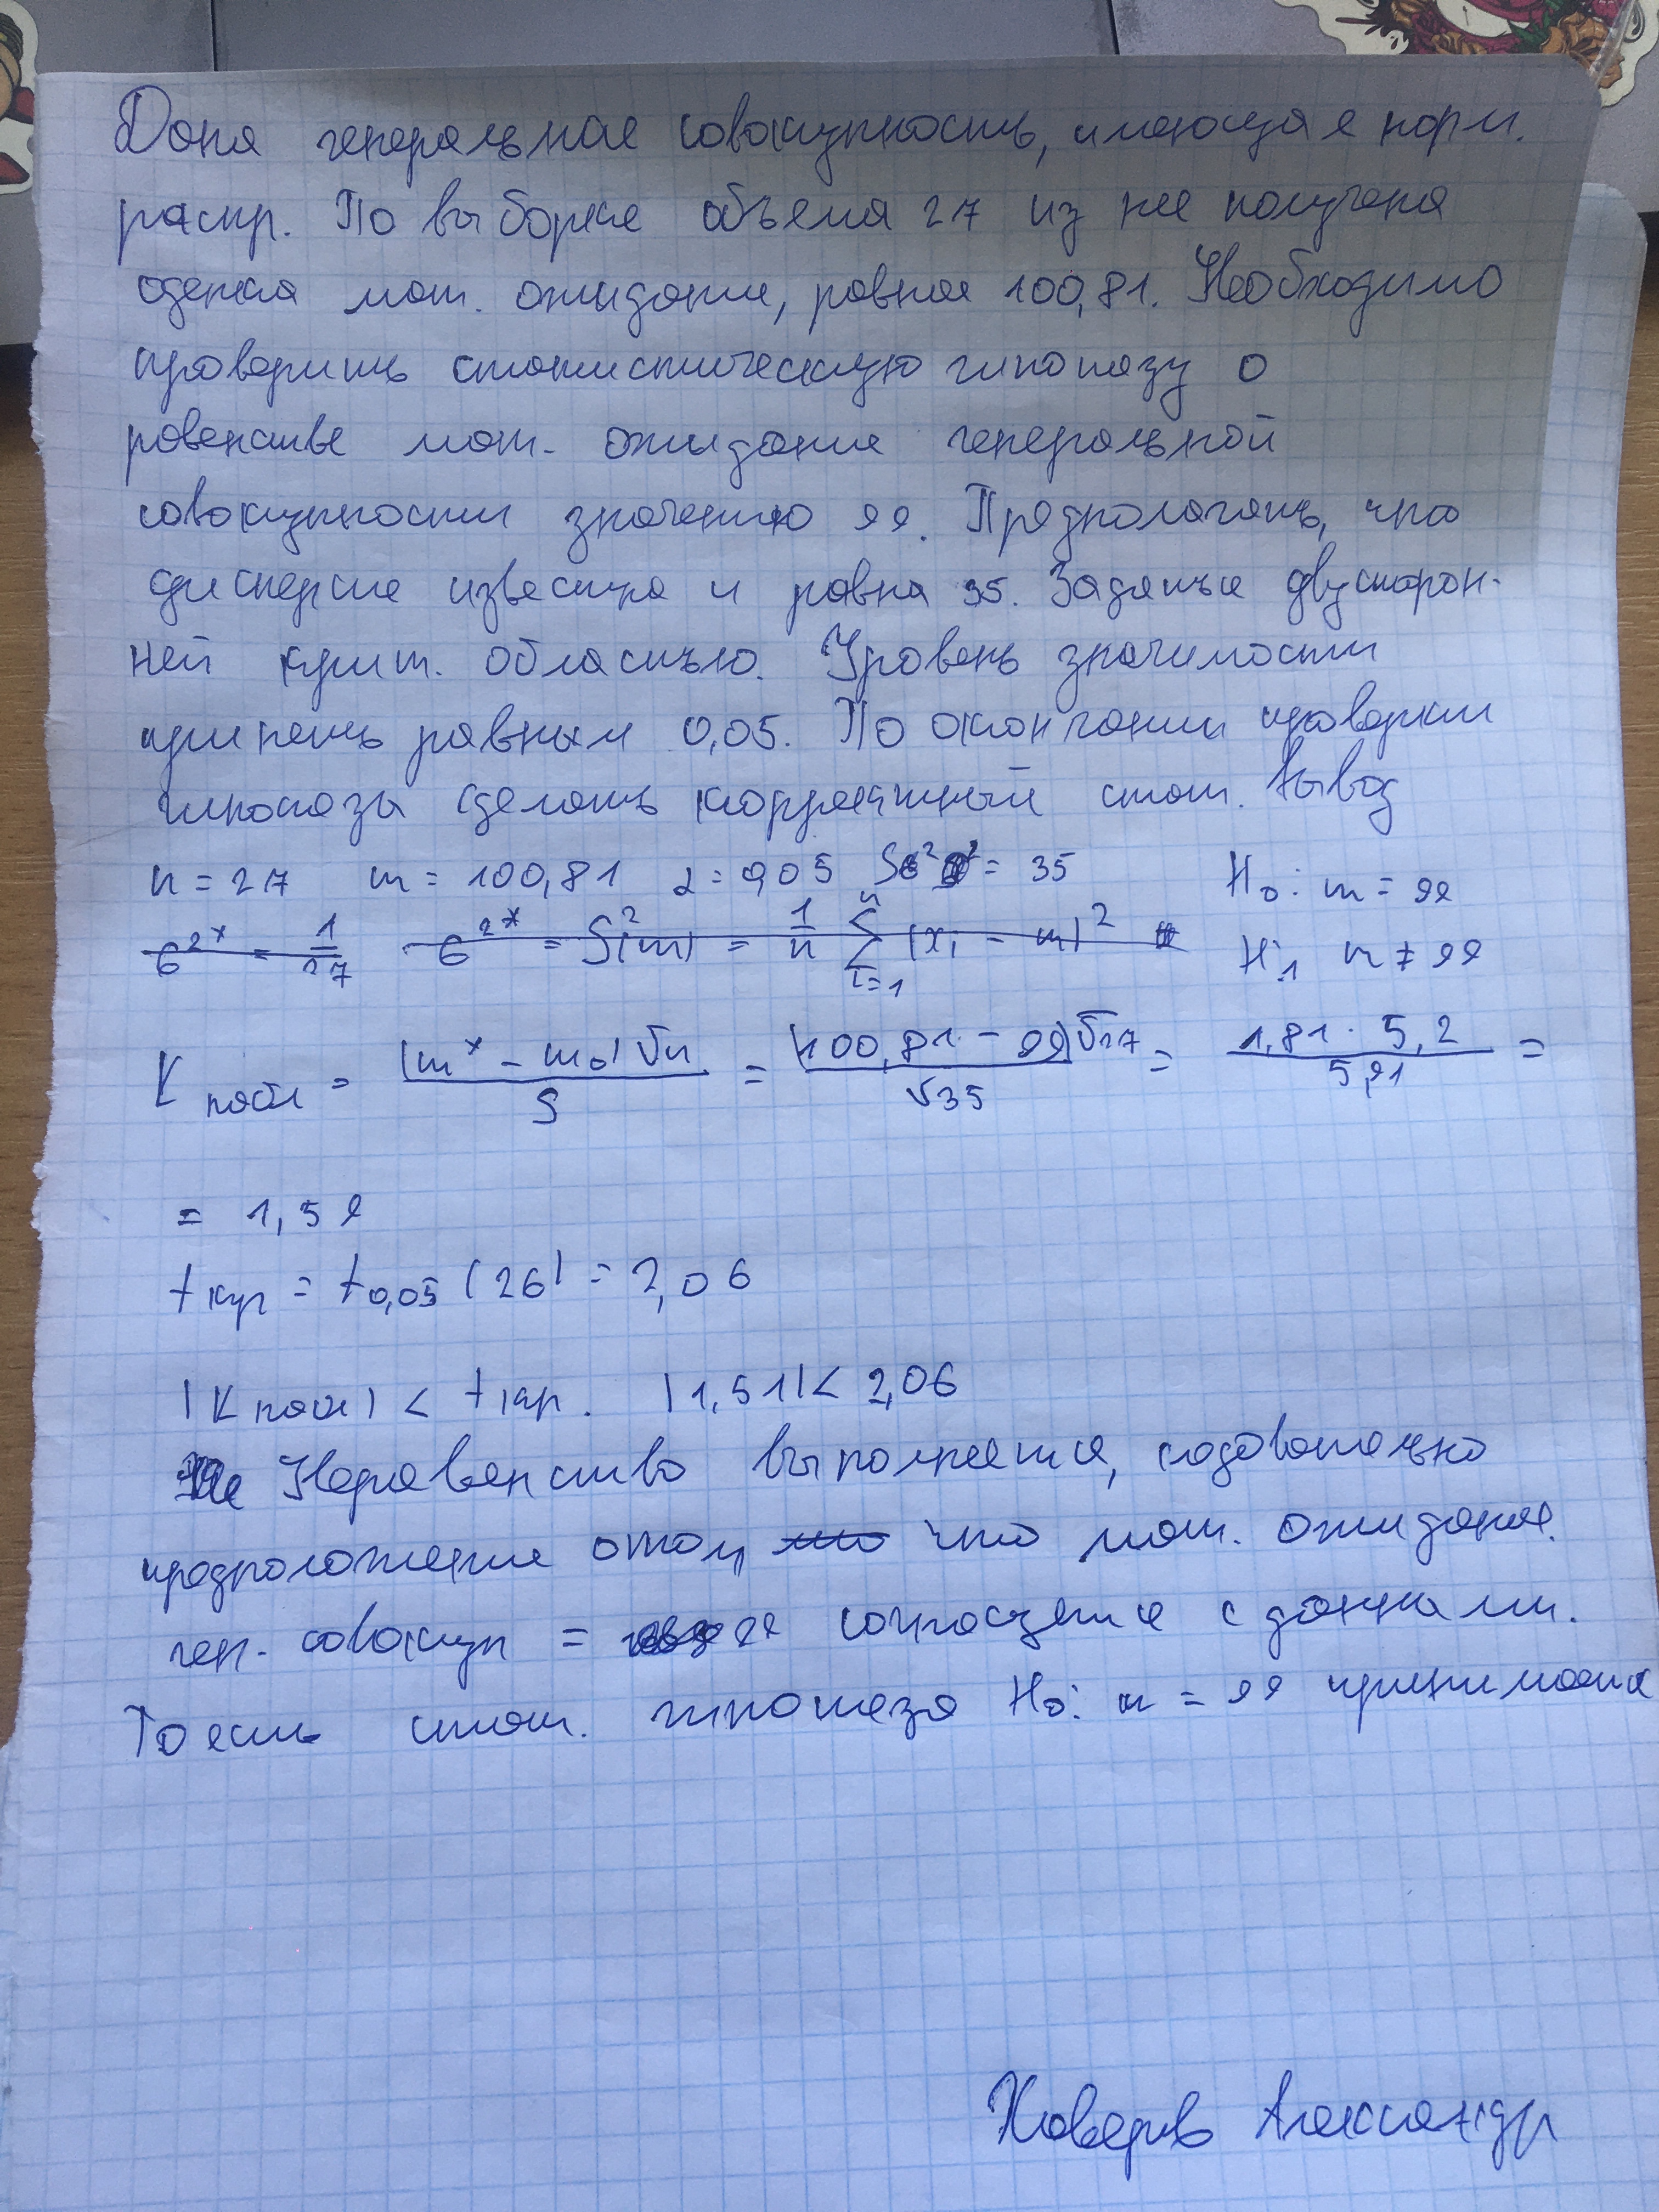 Дана генеральная совокупность, имеющая норм.
распр. По выборке объема 27 из нее получена
оценка мат. ожидания, равная 100,81. Необходимо
проверить статистическую гипотезу о
равенстве мат. ожидания генеральной
совокупности значению 99. Предполагать, что
дисперсия известна и равна 35. Задаться двусторон-
ней крит. областью. Уровень значимости
принять равным 0,05. По окончании проверки
гипотезы сделать корректный стат. вывод
n = 27 m = 100,81 α = 0,05 S² = 35 H₀: m = 99
σ²* = 1/27 σ²* = S²(m) = 1/n Σ i=1 n (xᵢ - m)² H₁ m ≠ 99
K набл = |m* - m₀|√n / S = |100,81 - 99|√27 / √35 = 1,81 · 5,2 / 5,91 =
= 1,59
t кр = t₀,₀₅ (26) = 2,06
|K набл| < t кр. |1,51| < 2,06
Неравенство выполняется, следовательно
предположение о том, что мат. ожидание
ген. совокуп = 99 согласуется с данными.
То есть стат. гипотеза H₀: m = 99 принимается
Ховеров Александр